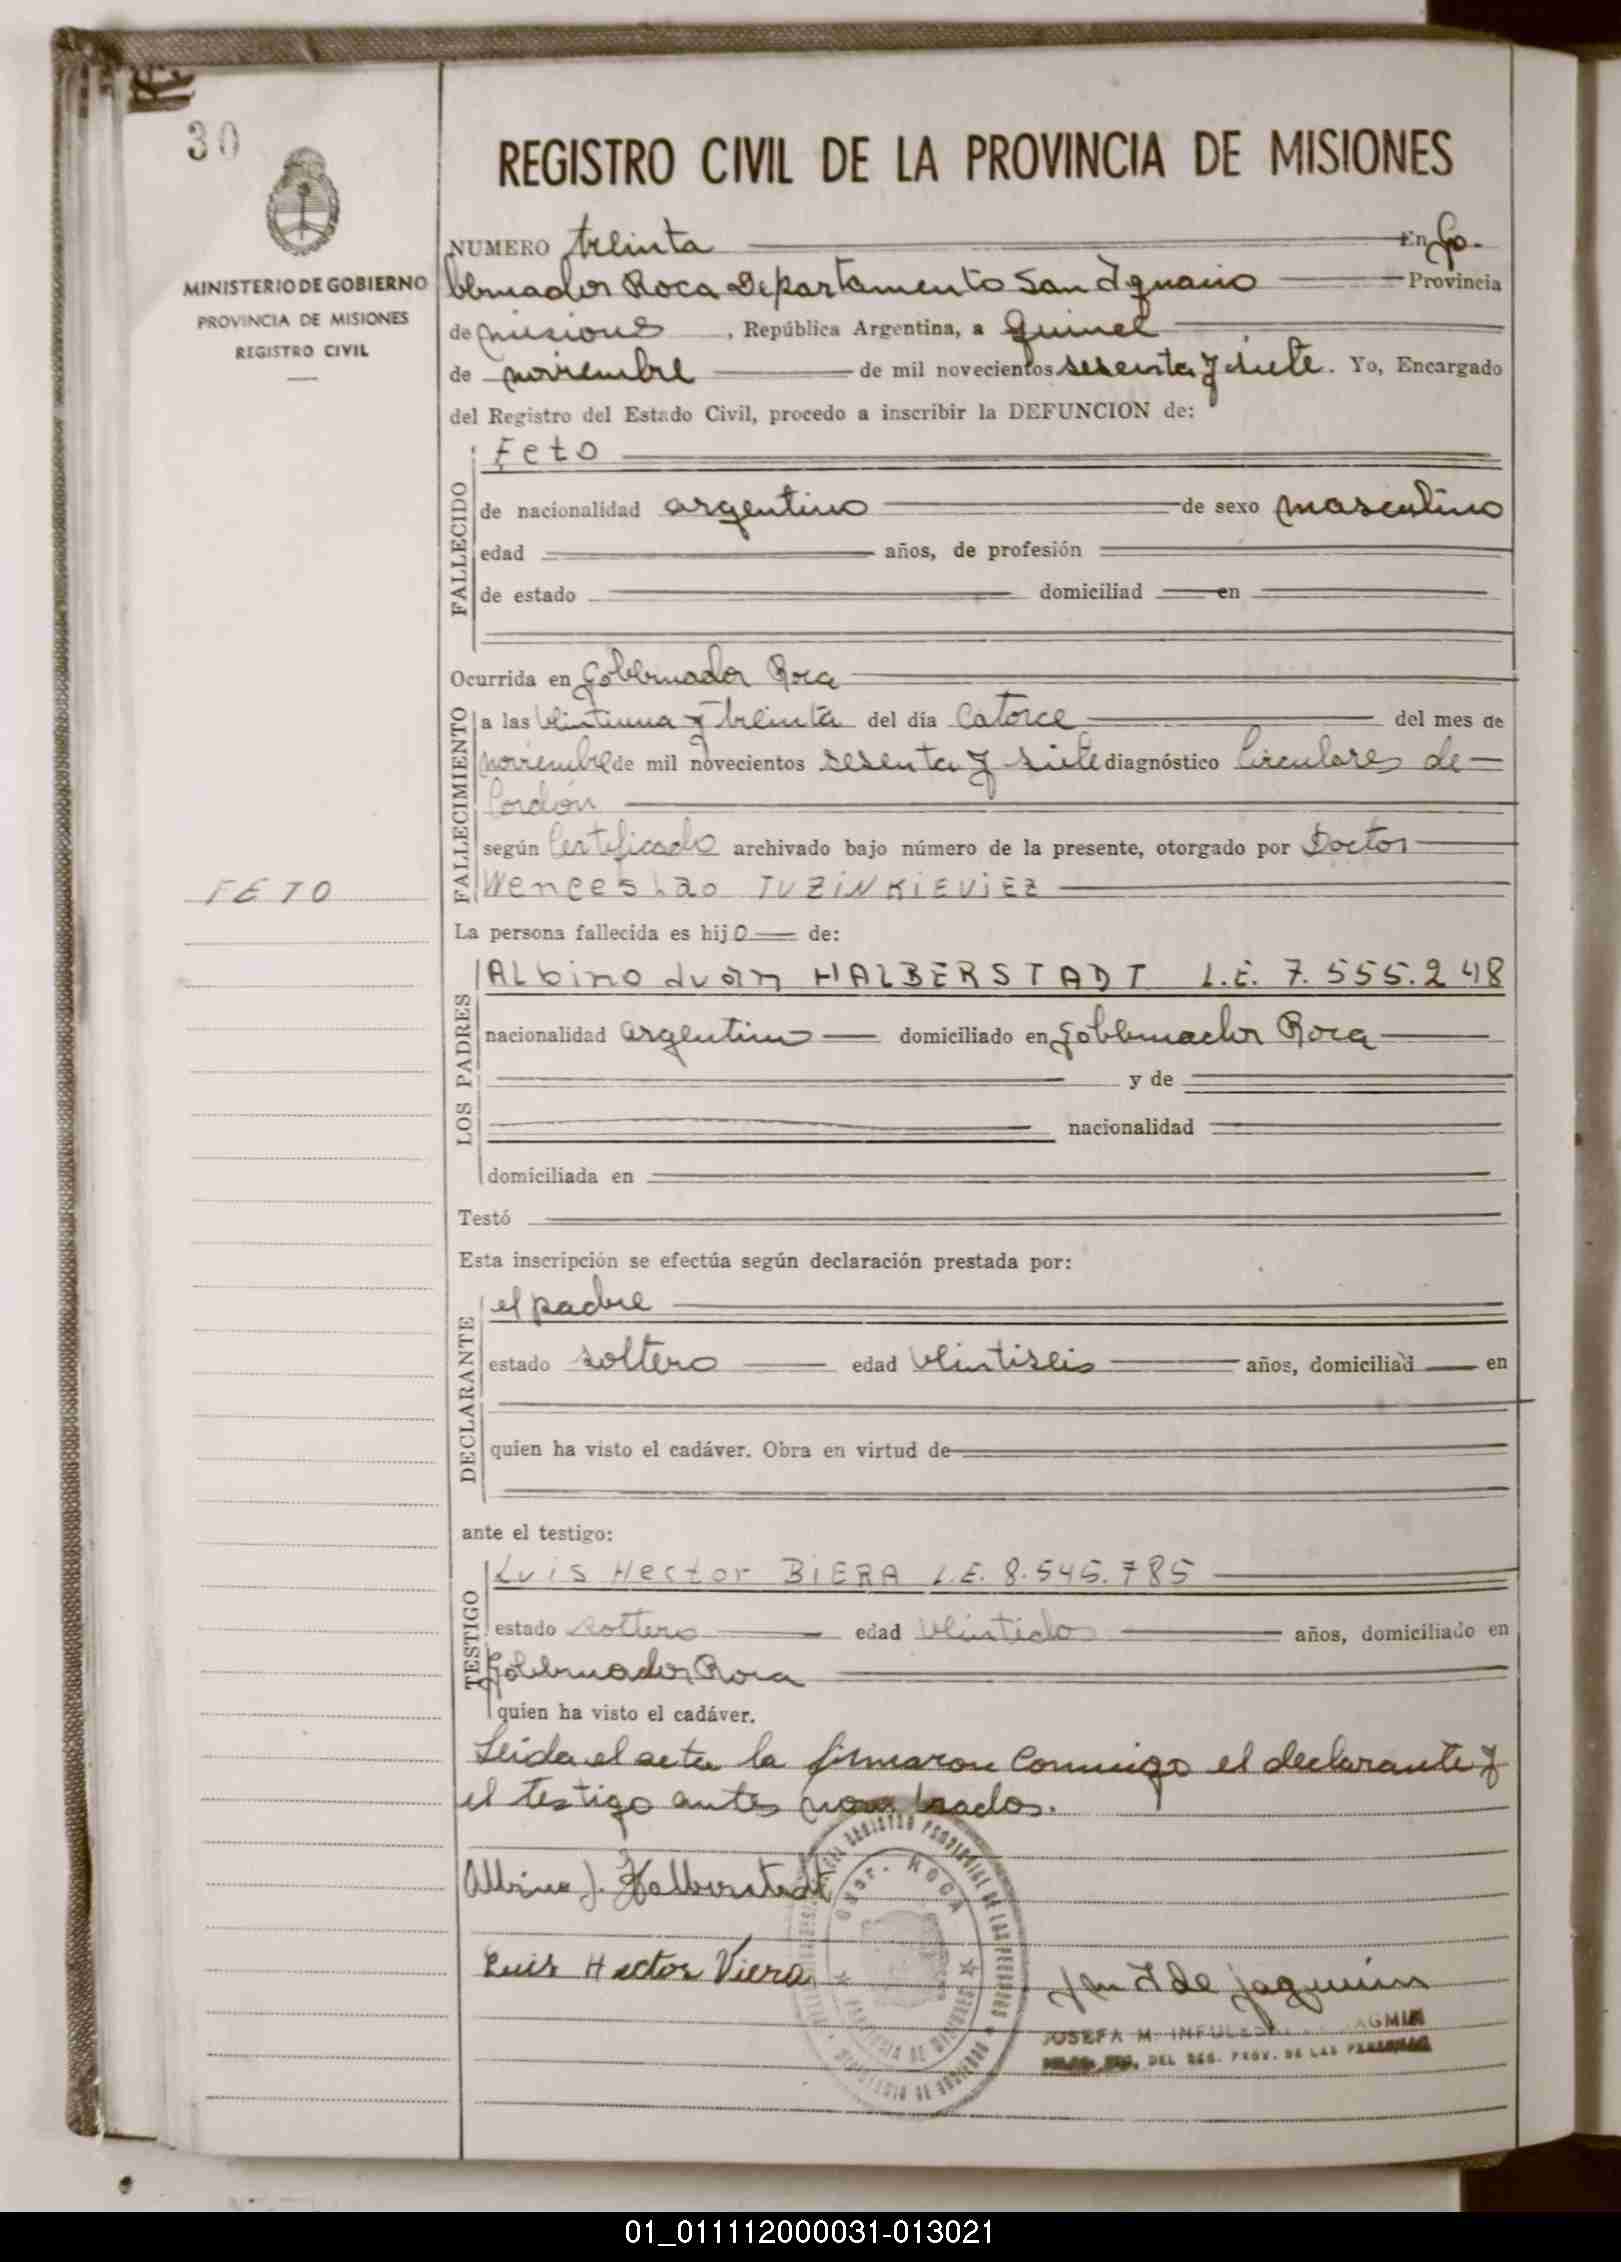 30
MINISTERIO DE GOBIERNO
PROVINCIA DE MISIONES
REGISTRO CIVIL
FETO
REGISTRO CIVIL DE LA PROVINCIA DE MISIONES
NUMERO treinta En Go-
bernador Roca Departamento San Ignacio Provincia
de misiones, República Argentina, a quince
de noviembre de mil novecientos sesenta y siete. Yo, Encargado
del Registro del Estado Civil, procedo a inscribir la DEFUNCION de:
FALLECIDO
Feto
de nacionalidad argentino de sexo masculino
edad años, de profesión
de estado domiciliad en
Ocurrida en Gobernador Roca
FALLECIMIENTO
a las veintiuna y treinta del día Catorce del mes de
noviembre de mil novecientos sesenta y siete diagnóstico Circulares de
Cordón
según Certificado archivado bajo número de la presente, otorgado por Doctor
Wenceslao TUZINKIEVIEZ
La persona fallecida es hijo de:
LOS PADRES
Albino Juan HALBERSTADT L.E. 7.555.248
nacionalidad argentino domiciliado en Gobernador Roca
y de
nacionalidad
domiciliada en
Testó
Esta inscripción se efectúa según declaración prestada por:
DECLARANTE
el padre
estado soltero edad veintiseis años, domiciliad en
quien ha visto el cadáver. Obra en virtud de
ante el testigo:
TESTIGO
Luis Hector BIERA L.E. 8.545.785
estado soltero edad veintidos años, domiciliado en
Gobernador Roca
quien ha visto el cadáver.
Leida el acta la firmaron conmigo el declarante y
el testigo antes nombrados.
Albino J. Halberstadt
Luis Hector Viera
Gdor. ROCA
PROVINCIA DE MISIONES
JOSEFA M.
DEL REG. PROV. DE LAS PERSONAS
01_011112000031-013021